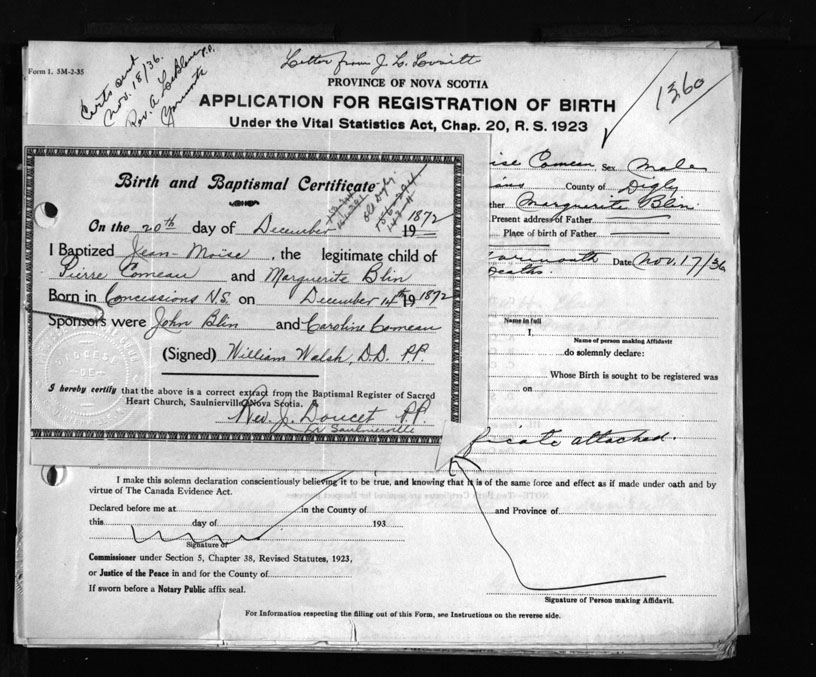 Form 1. 5M-2-35
Certs sent
Nov. 18/36.
Rev. A. LeBlanc P.P.
Yarmouth
Letter from J. L. Lovitt
1360
PROVINCE OF NOVA SCOTIA
APPLICATION FOR REGISTRATION OF BIRTH
Under the Vital Statistics Act, Chap. 20, R. S. 1923
Birth and Baptismal Certificate
On the 20th day of December 19 1872
I Baptized Jean-Moïse, the legitimate child of
Pierre Comeau and Marguerite Blin
Born in Concessions N.S. on December 14th 19 1872
Sponsors were John Blin and Caroline Comeau
(Signed) William Walsh, D.D. P.P.
I hereby certify that the above is a correct extract from the Baptismal Register of Sacred
Heart Church, Saulnierville, Nova Scotia.
Rev. J. Doucet P.P.
Saulnierville
ise Comeau Sex Male
ons County of Digby
ther Marguerite Blin
Present address of Father
Place of birth of Father
armouth Date Nov. 17/36
Deaths.
Name in full
I,
Name of person making Affidavit
do solemnly declare:
Whose Birth is sought to be registered was
on
ficate attached.
I make this solemn declaration conscientiously believing it to be true, and knowing that it is of the same force and effect as if made under oath and by
virtue of The Canada Evidence Act.
Declared before me at in the County of and Province of
this day of 193
Signature of
Commissioner under Section 5, Chapter 38, Revised Statutes, 1923,
or Justice of the Peace in and for the County of
If sworn before a Notary Public affix seal.
Signature of Person making Affidavit.
For Information respecting the filling out of this Form, see Instructions on the reverse side.